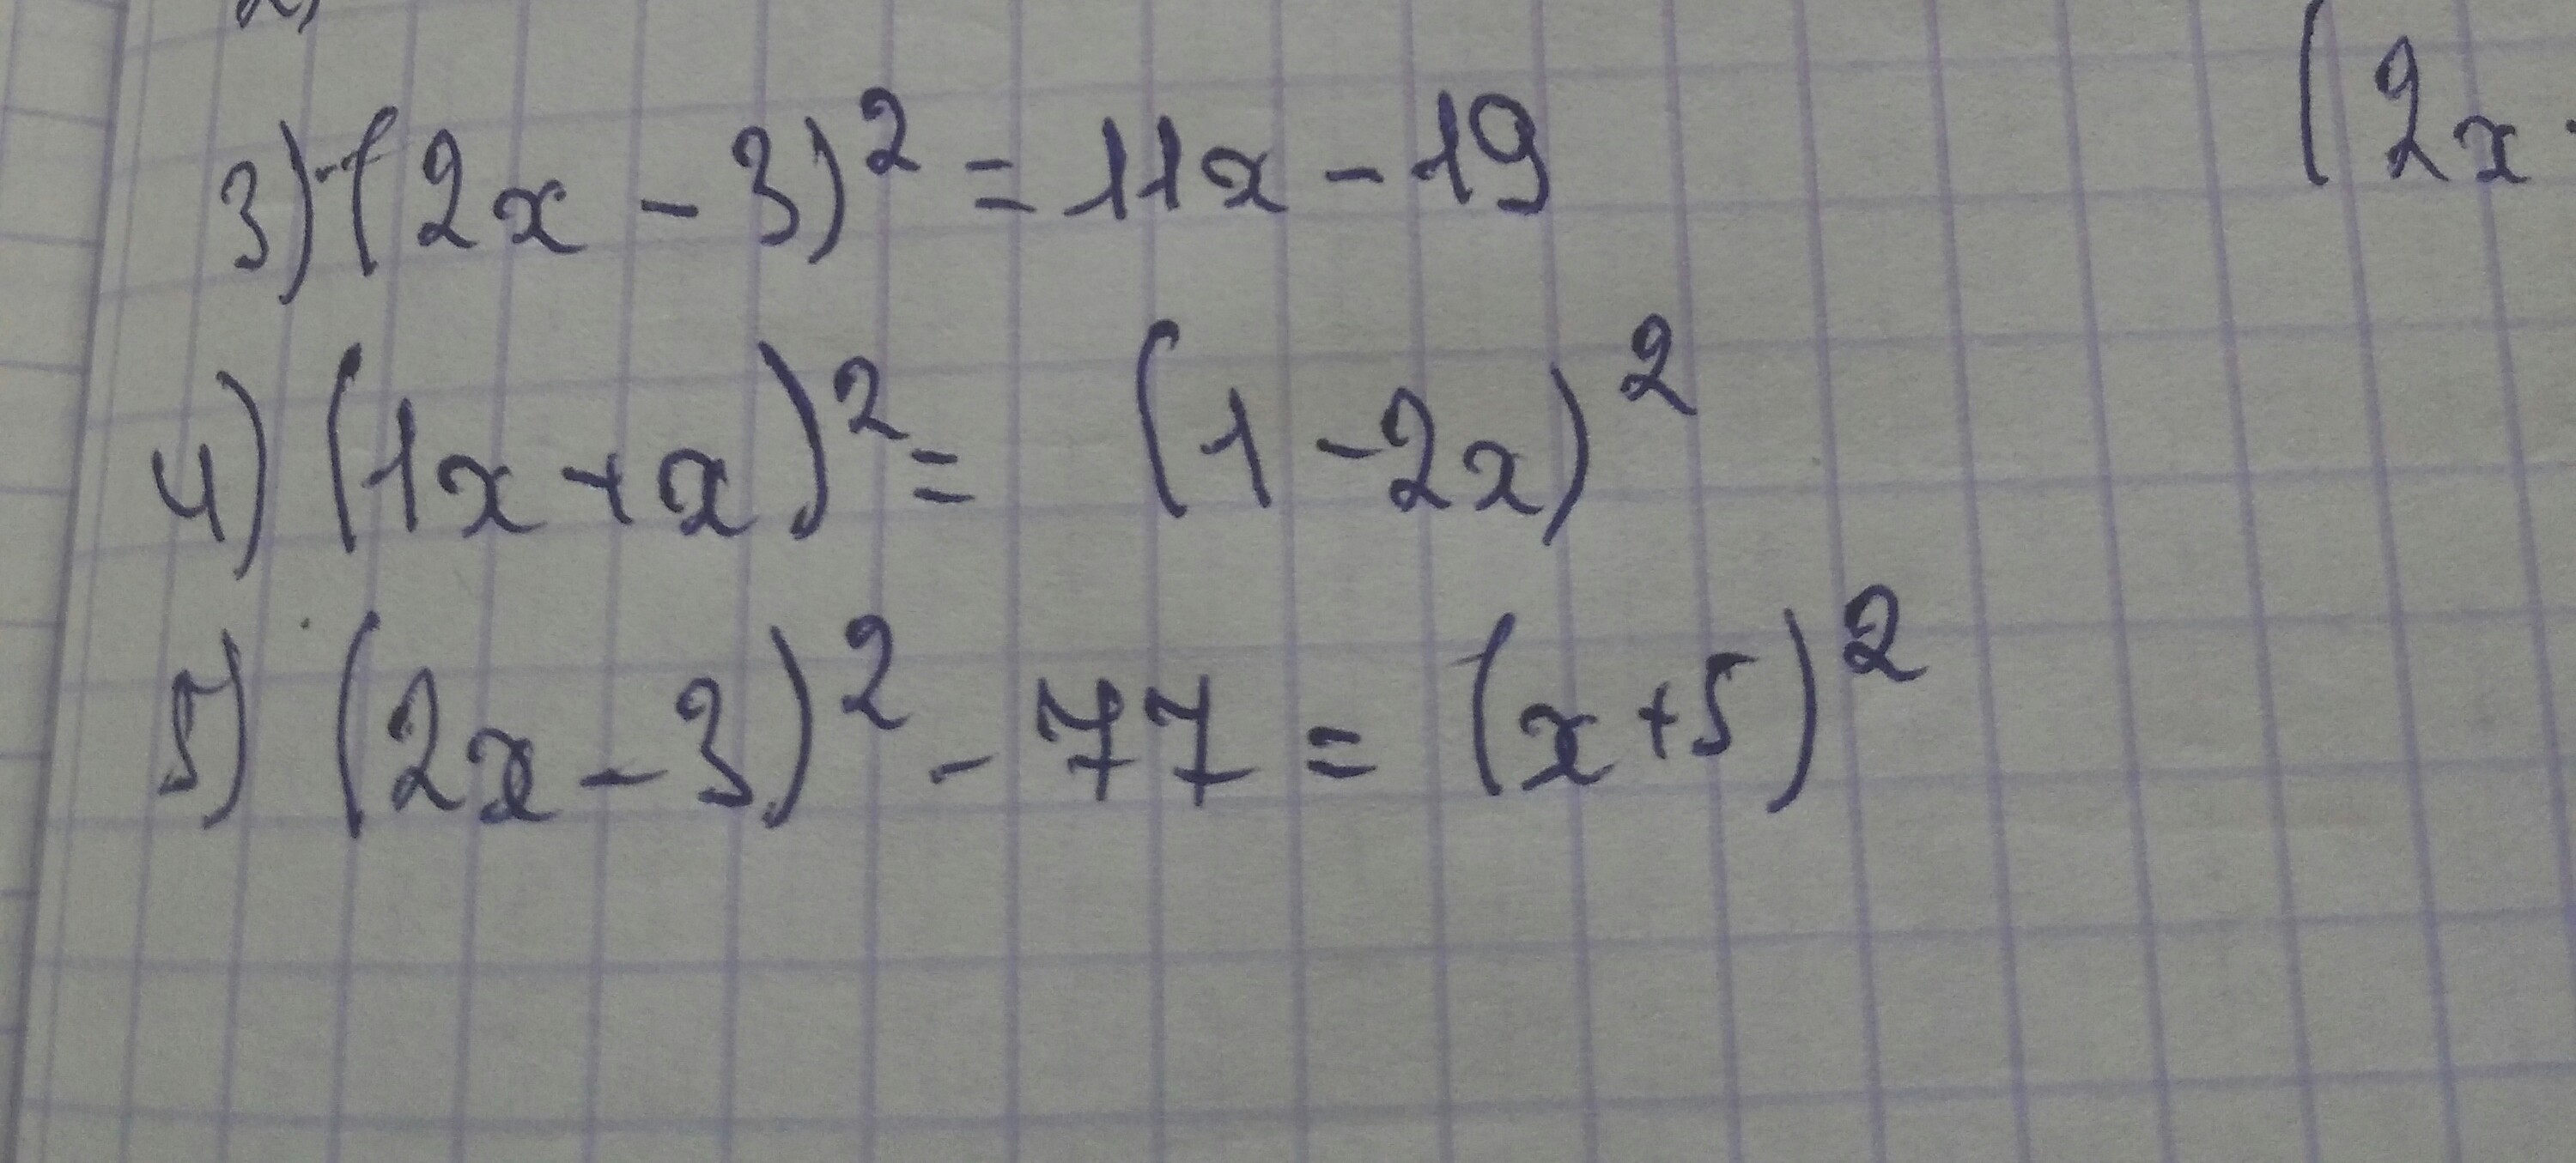 3) (2x - 3)² = 11x - 19
4) (1x + x)² = (1 - 2x)²
5) (2x - 3)² - 77 = (x + 5)²
(2x